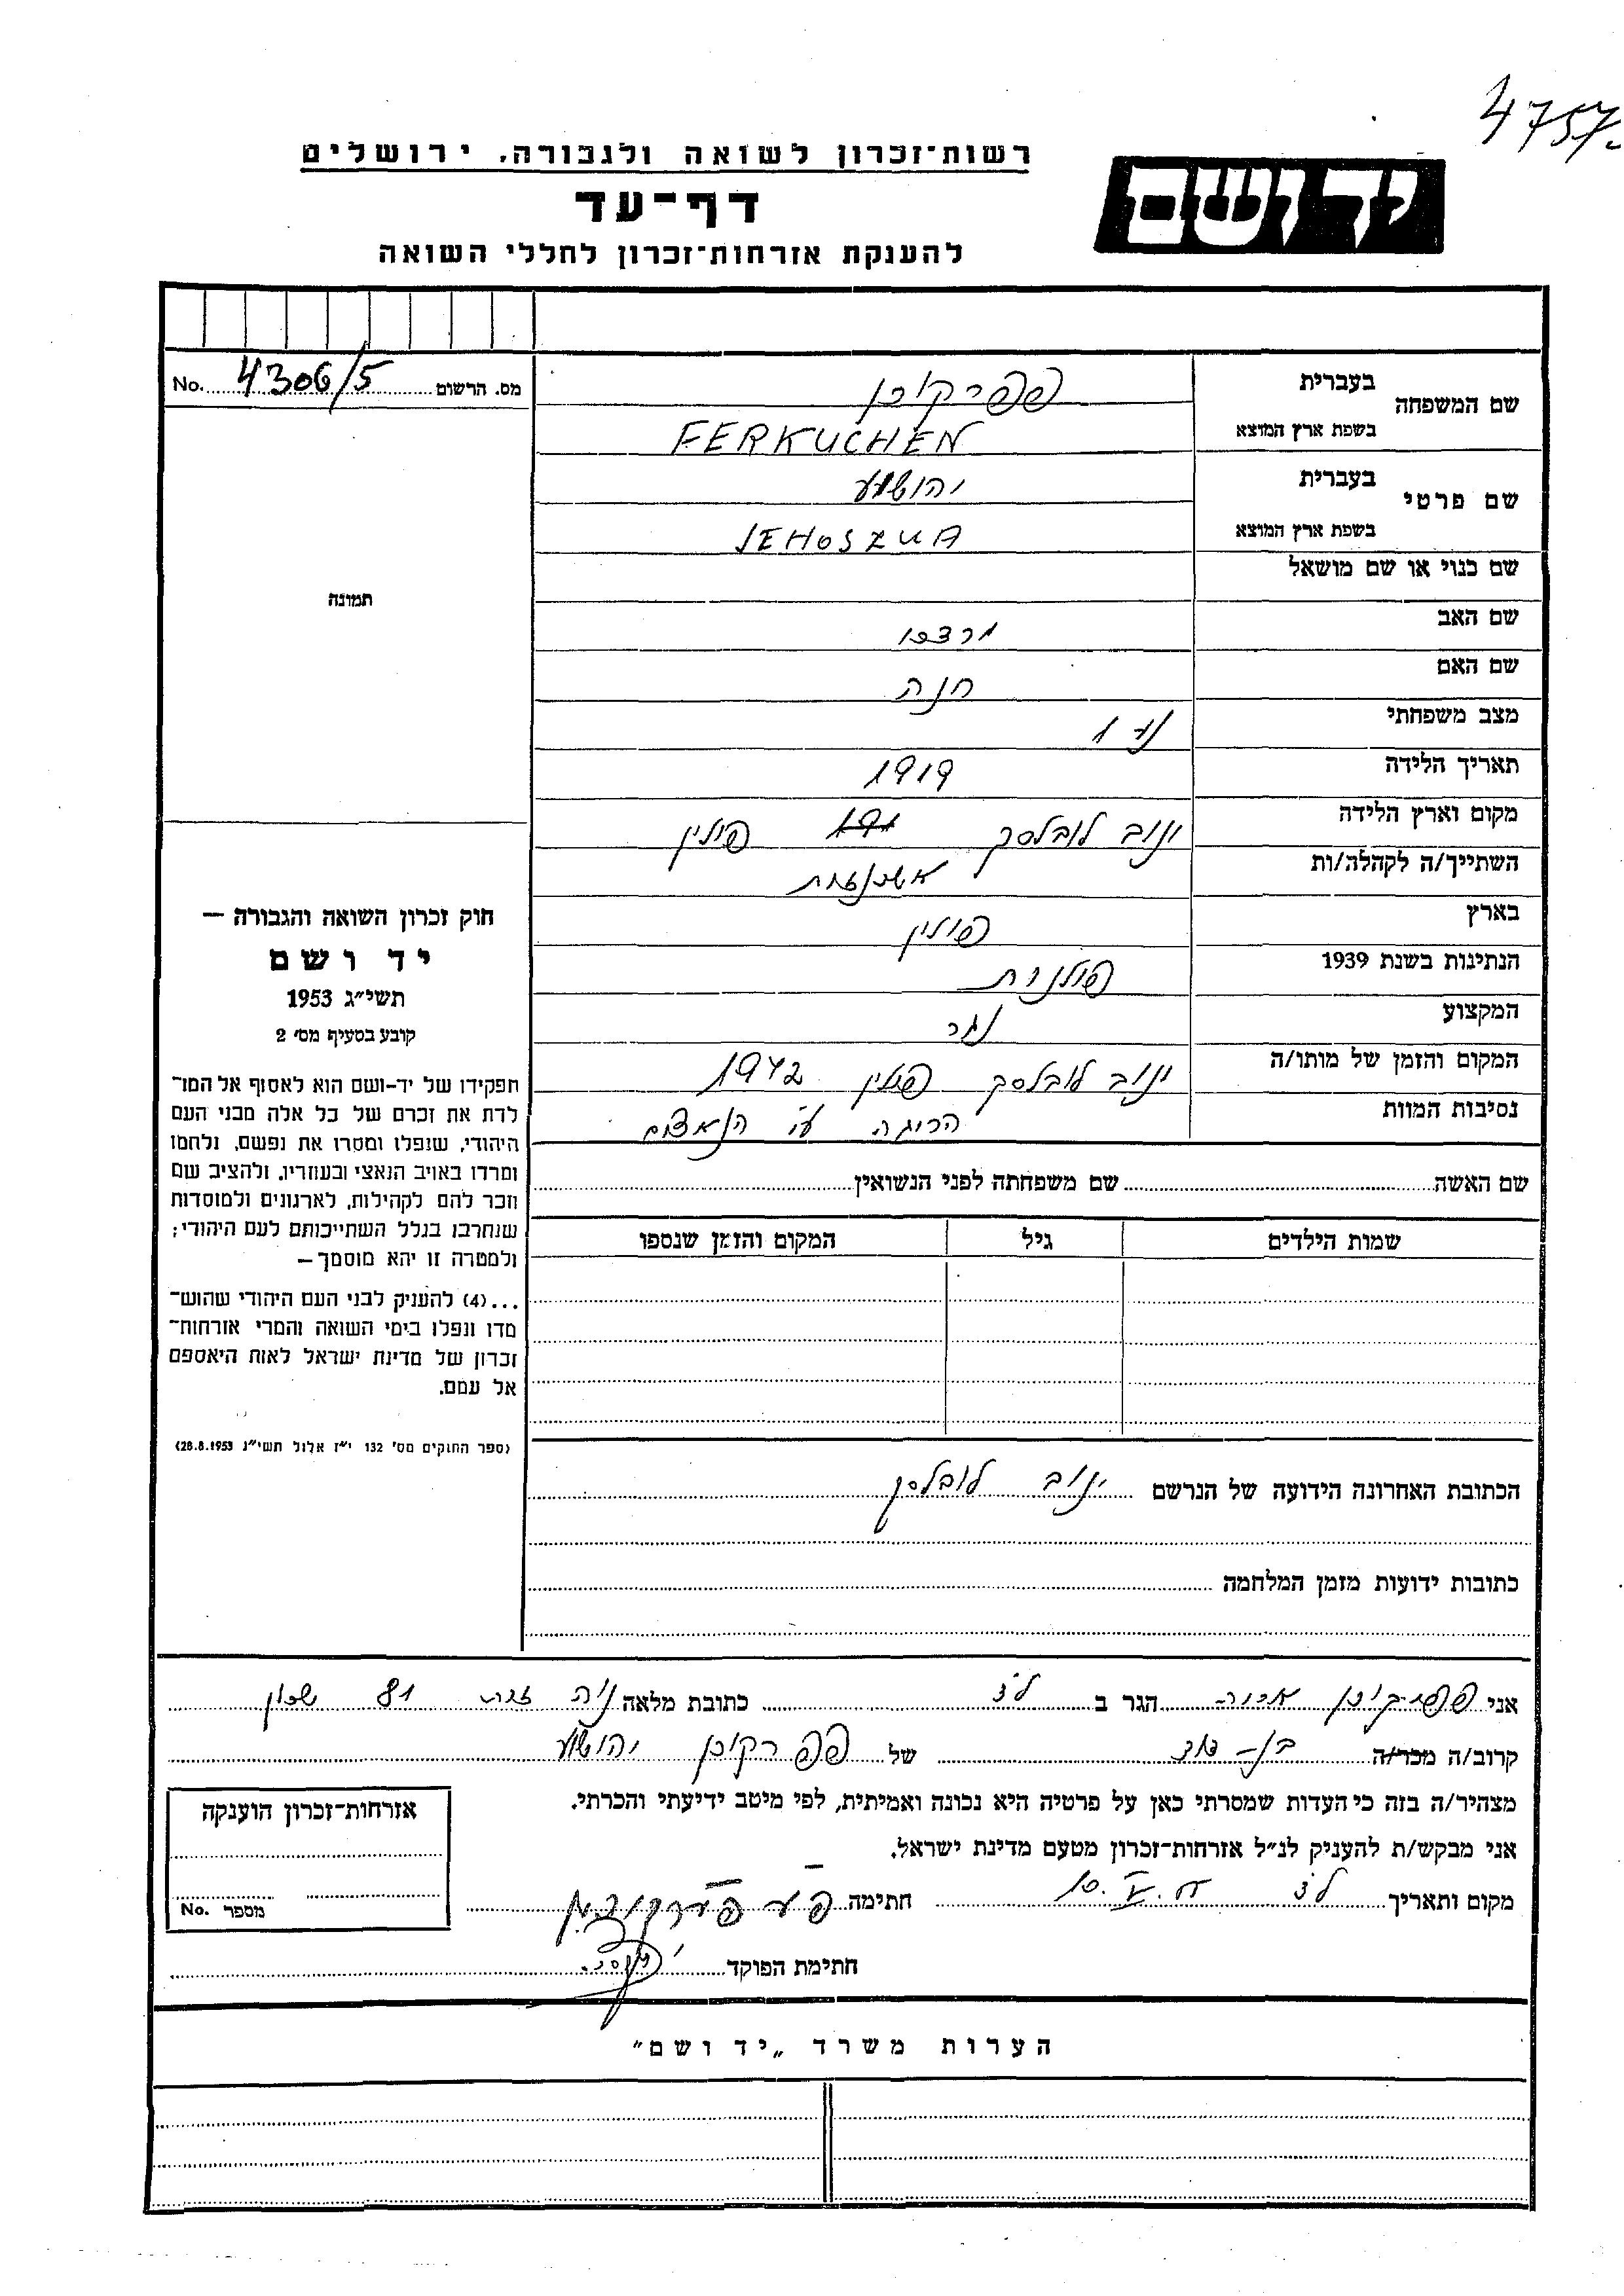 4757.
רשות־זכרון לשואה ולגבורה, ירושלים
יד ושם
דף־עד
להענקת אזרחות־זכרון לחללי השואה
מס. הרשום 4306/5 No.
שם המשפחה בעברית פפרקוכן
בשפת ארץ המוצא FERKUCHEN
שם פרטי בעברית יהושע
בשפת ארץ המוצא JEHOSZUA
שם כנוי או שם מושאל
שם האב מרדכי
שם האם חנה
מצב משפחתי
תאריך הלידה 1919
מקום וארץ הלידה ינוב לובלסק פולין
השתייך/ה לקהלה/ות אשכנזית
בארץ פולין
הנתינות בשנת 1939 פולנית
המקצוע נגר
המקום והזמן של מותו/ה ינוב לובלסק פולין 1942
נסיבות המוות הריגה ע"י הנאצים
תמונה
חוק זכרון השואה והגבורה —
יד ושם
תשי״ג 1953
קובע בסעיף מס׳ 2
תפקידו של יד-ושם הוא לאסוף אל המו־
לדת את זכרם של כל אלה מבני העם
היהודי, שנפלו ומסרו את נפשם, נלחמו
ומרדו באויב הנאצי ובעוזריו, ולהציב שם
וזכר להם לקהילות, לארגונים ולמוסדות
שנחרבו בגלל השתייכותם לעם היהודי;
ולמטרה זו יהא מוסמך—
...(4) להעניק לבני העם היהודי שהוש־
מדו ונפלו בימי השואה והמרי אזרחות־
זכרון של מדינת ישראל לאות היאספם
אל עמם.
(ספר החוקים מס׳ 132 י״ז אלול תשי״ג 28.8.1953)
שם האשה שם משפחתה לפני הנשואין
שמות הילדים גיל המקום והזמן שנספו
הכתובת האחרונה הידועה של הנרשם ינוב לובלסק
כתובות ידועות מזמן המלחמה
אני פפרקוכן הגר ב כתובת מלאה 81 שכון
קרוב/ה מכר/ה בן-דוד של פפרקוכן יהושע
מצהיר/ה בזה כי העדות שמסרתי כאן על פרטיה היא נכונה ואמיתית, לפי מיטב ידיעתי והכרתי.
אני מבקש/ת להעניק לנ״ל אזרחות־זכרון מטעם מדינת ישראל.
מקום ותאריך חתימה
חתימת הפוקד
אזרחות־זכרון הוענקה
מספר No.
הערות משרד „יד ושם״